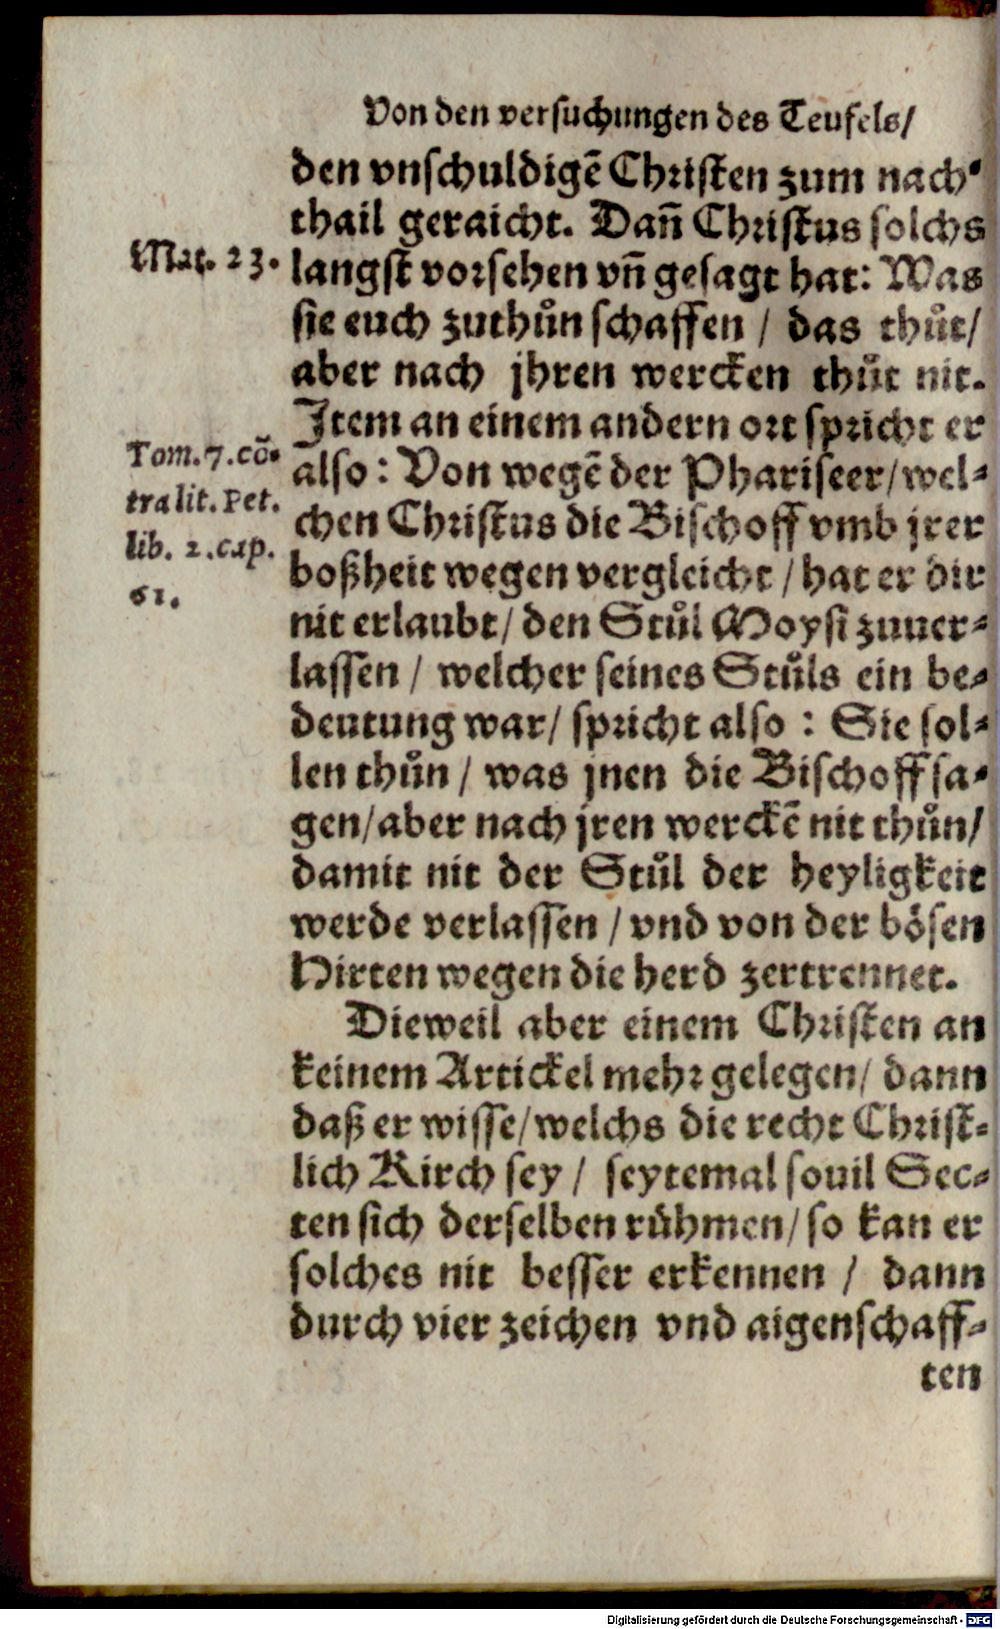 Von den versuchungen des Teufels/
den vnschuldigē Christen zum nach⸗
thail geraicht. Dañ Christus solchs
Mat. 23.
langst vorsehen vñ gesagt hat: Was
sie euch zuthůn schaffen / das thůt/
aber nach jhren wercken thůt nit.
Item an einem andern ort spricht er
Tom. 7. cō⸗
tra lit. Pet.
lib. 2. cap.
61.
also: Von wegē der Phariseer/wel⸗
chen Christus die Bischoff vmb jrer
boßheit wegen vergleicht / hat er dir
nit erlaubt/ den Stůl Moysi zuuer⸗
lassen / welcher seines Stůls ein be⸗
deutung war/ spricht also : Sie sol⸗
len thůn / was jnen die Bischoff sa⸗
gen/aber nach jren werckē nit thůn/
damit nit der Stůl der heyligkeit
werde verlassen / vnd von der bösen
Hirten wegen die herd zertrennet.
Dieweil aber einem Christen an
keinem Artickel mehr gelegen/ dann
daß er wisse/welchs die recht Christ⸗
lich Kirch sey / seytemal souil Sec⸗
ten sich derselben rühmen/ so kan er
solches nit besser erkennen / dann
durch vier zeichen vnd aigenschaff⸗
ten
Digitalisierung gefördert durch die Deutsche Forschungsgemeinschaft - DFG